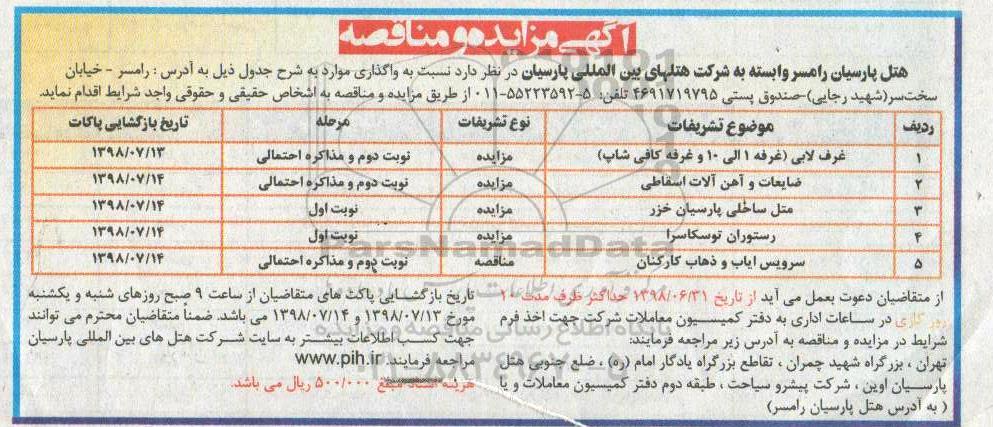 آگهی مزایده و مناقصه
هتل پارسیان رامسر وابسته به شرکت هتلهای بین المللی پارسیان در نظر دارد نسبت به واگذاری موارد به شرح جدول ذیل به آدرس : رامسر - خیابان
سخت‌سر(شهید رجایی)-صندوق پستی ۴۶۹۱۷۱۹۷۹۵ تلفن: ۵-۵۵۲۲۳۵۹۲-۰۱۱ از طریق مزایده و مناقصه به اشخاص حقیقی و حقوقی واجد شرایط اقدام نماید.
ردیف موضوع تشریفات نوع تشریفات مرحله تاریخ بازگشایی پاکات
۱ غرف لابی (غرفه ۱ الی ۱۰ و غرفه کافی شاپ) مزایده نوبت دوم و مذاکره احتمالی ۱۳۹۸/۰۷/۱۳
۲ ضایعات و آهن آلات اسقاطی مزایده نوبت دوم و مذاکره احتمالی ۱۳۹۸/۰۷/۱۴
۳ متل ساحلی پارسیان خزر مزایده نوبت اول ۱۳۹۸/۰۷/۱۴
۴ رستوران توسکاسرا مزایده نوبت اول ۱۳۹۸/۰۷/۱۴
۵ سرویس ایاب و ذهاب کارکنان مناقصه نوبت دوم و مذاکره احتمالی ۱۳۹۸/۰۷/۱۴
از متقاضیان دعوت بعمل می آید از تاریخ ۱۳۹۸/۰۶/۳۱ حداکثر ظرف مدت ۱۰
روز کاری در ساعات اداری به دفتر کمیسیون معاملات شرکت جهت اخذ فرم
شرایط در مزایده و مناقصه به آدرس زیر مراجعه فرمایند:
تهران ، بزرگراه شهید چمران ، تقاطع بزرگراه یادگار امام (ره) ، ضلع جنوبی هتل
پارسیان اوین ، شرکت پیشرو سیاحت ، طبقه دوم دفتر کمیسیون معاملات و یا
( به آدرس هتل پارسیان رامسر)
تاریخ بازگشایی پاکت های متقاضیان از ساعت ۹ صبح روزهای شنبه و یکشنبه
مورخ ۱۳۹۸/۰۷/۱۳ و ۱۳۹۸/۰۷/۱۴ می باشد. ضمناً متقاضیان محترم می توانند
جهت کسب اطلاعات بیشتر به سایت شرکت هتل های بین المللی پارسیان
مراجعه فرمایند: www.pih.ir
هزینه اسناد مبلغ ۵۰۰/۰۰۰ ریال می باشد.
ParsNamadData